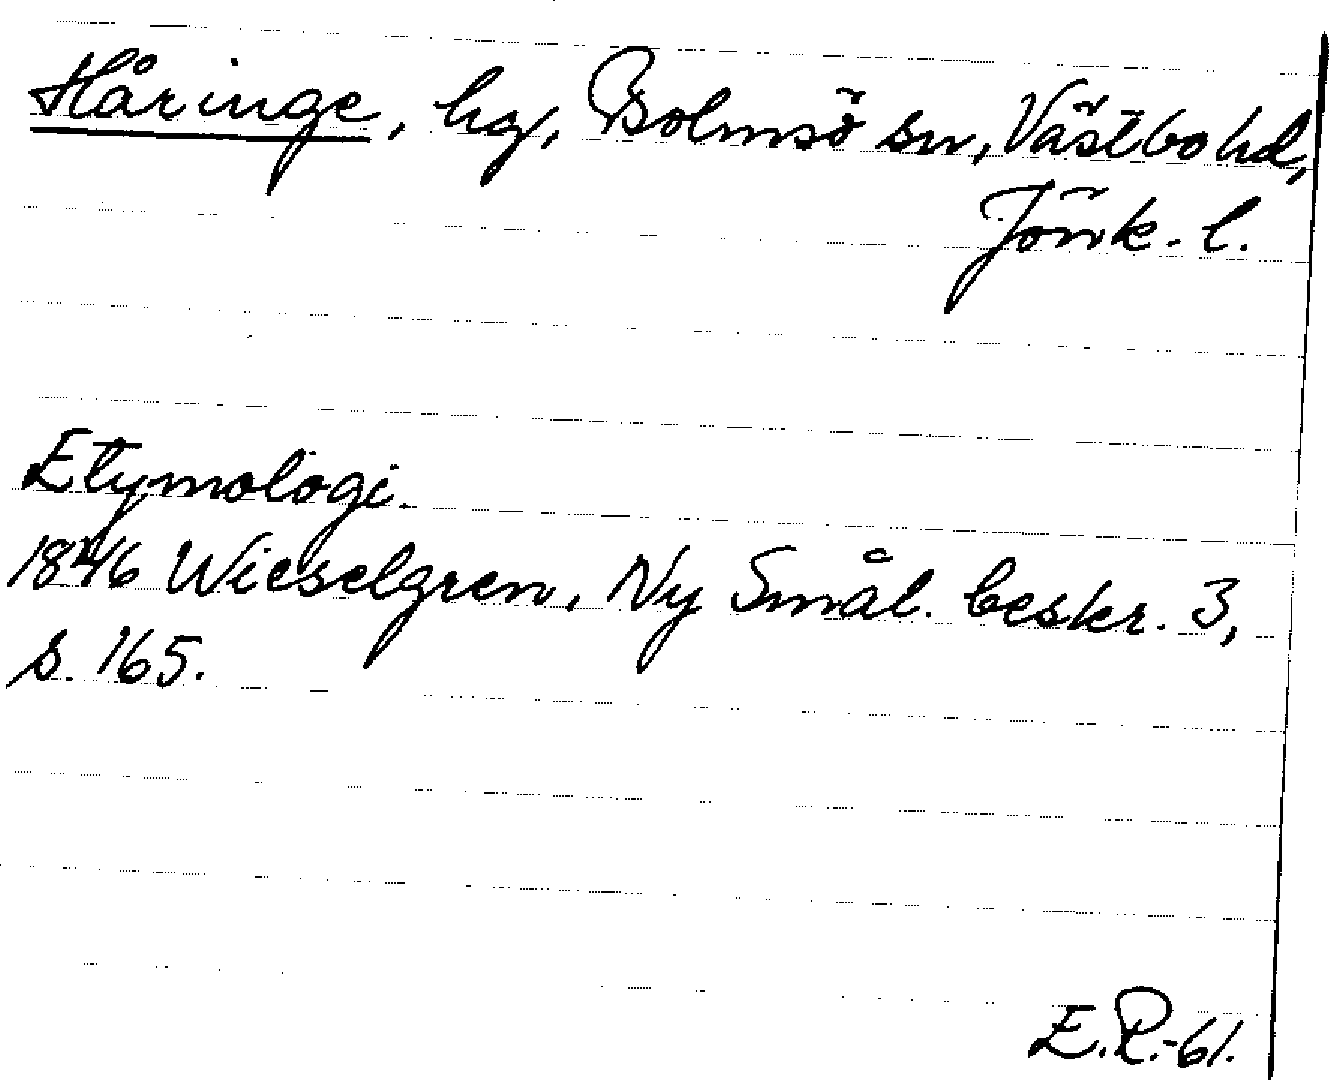 Håringe, hg, Bolmsö sn, Västbo hd,
Jönk. l.
Etymologi.
1846 Wieselgren, Ny Smål. beskr. 3,
s. 165.
E.R.-61.